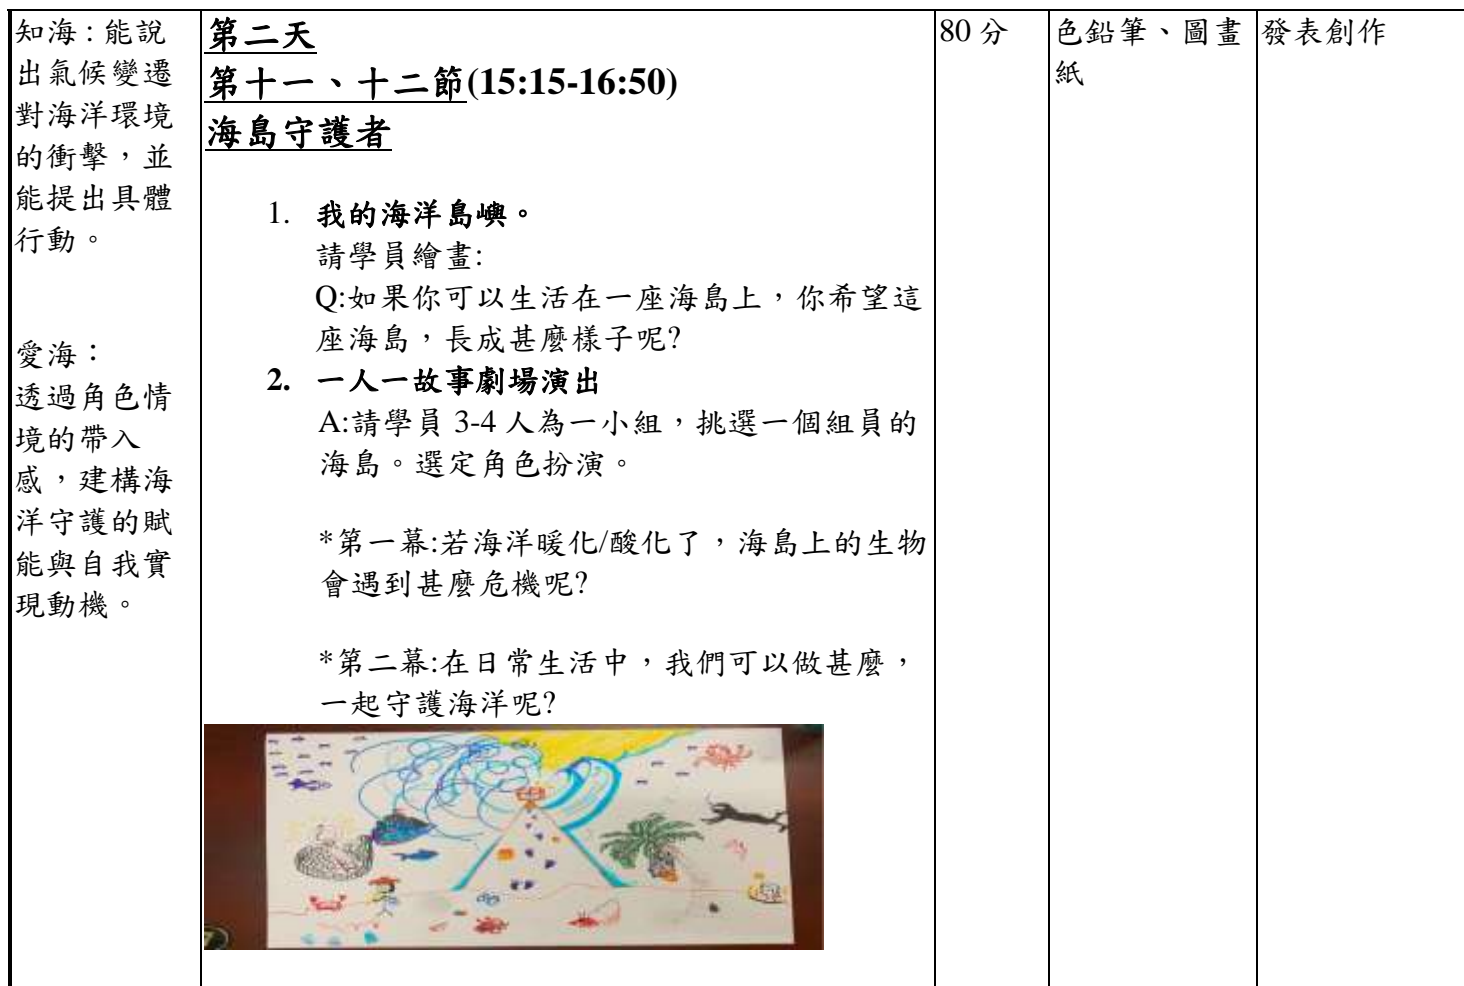 知海:能說
出氣候變遷
對海洋環境
的衝擊,並
能提出具體
行動。
愛海:
透過角色情
境的帶入
感,建構海
洋守護的賦
能與自我實
現動機。
第二天
第十一、十二節(15:15-16:50)
海島守護者
1. 我的海洋島嶼。
請學員繪畫:
Q:如果你可以生活在一座海島上,你希望這
座海島,長成甚麼樣子呢?
2. 一人一故事劇場演出
A:請學員 3-4 人為一小組,挑選一個組員的
海島。選定角色扮演。
*第一幕:若海洋暖化/酸化了,海島上的生物
會遇到甚麼危機呢?
*第二幕:在日常生活中,我們可以做甚麼,
一起守護海洋呢?
80 分
色鉛筆、圖畫
紙
發表創作